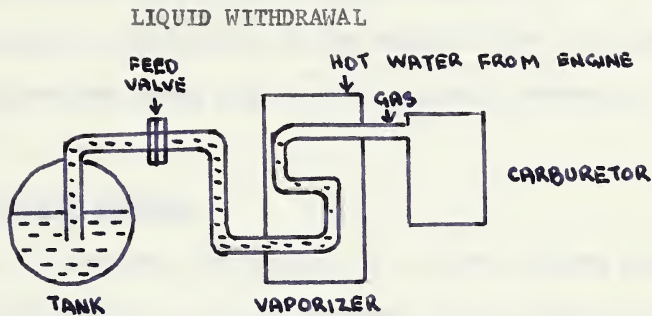 LIQUID WITHDRAWAL
FEED
VALVE
HOT WATER FROM ENGINE
GAS
CARBURETOR
TANK
VAPORIZER